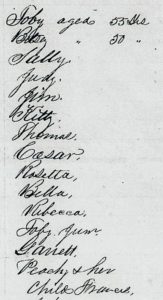 Toby aged 55 Yrs
Betsy " 50 "
Sally
Judy
Jim
Kitty
Thomas
Caesar
Rosetta,
Bella,
Rebecca,
Toby Junr.
Garrett.
Peachy & her
Child Francis.